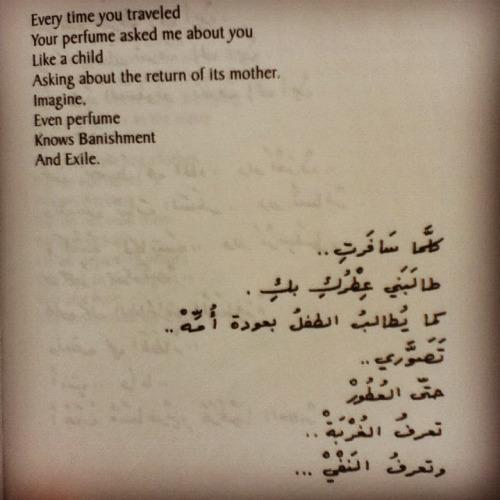 Every time you traveled
Your perfume asked me about you
Like a child
Asking about the return of its mother.
Imagine,
Even perfume
Knows Banishment
And Exile.
كلَّما سَافَرتِ..
طالَبَني عِطْرُكِ بكِ.
كما يُطالبُ الطفلُ بعودة أُمِّهْ..
تَصَوَّري..
حتّى العُطُورْ
تعرفُ الغُرْبَةْ..
وتعرفُ النَفْيْ...